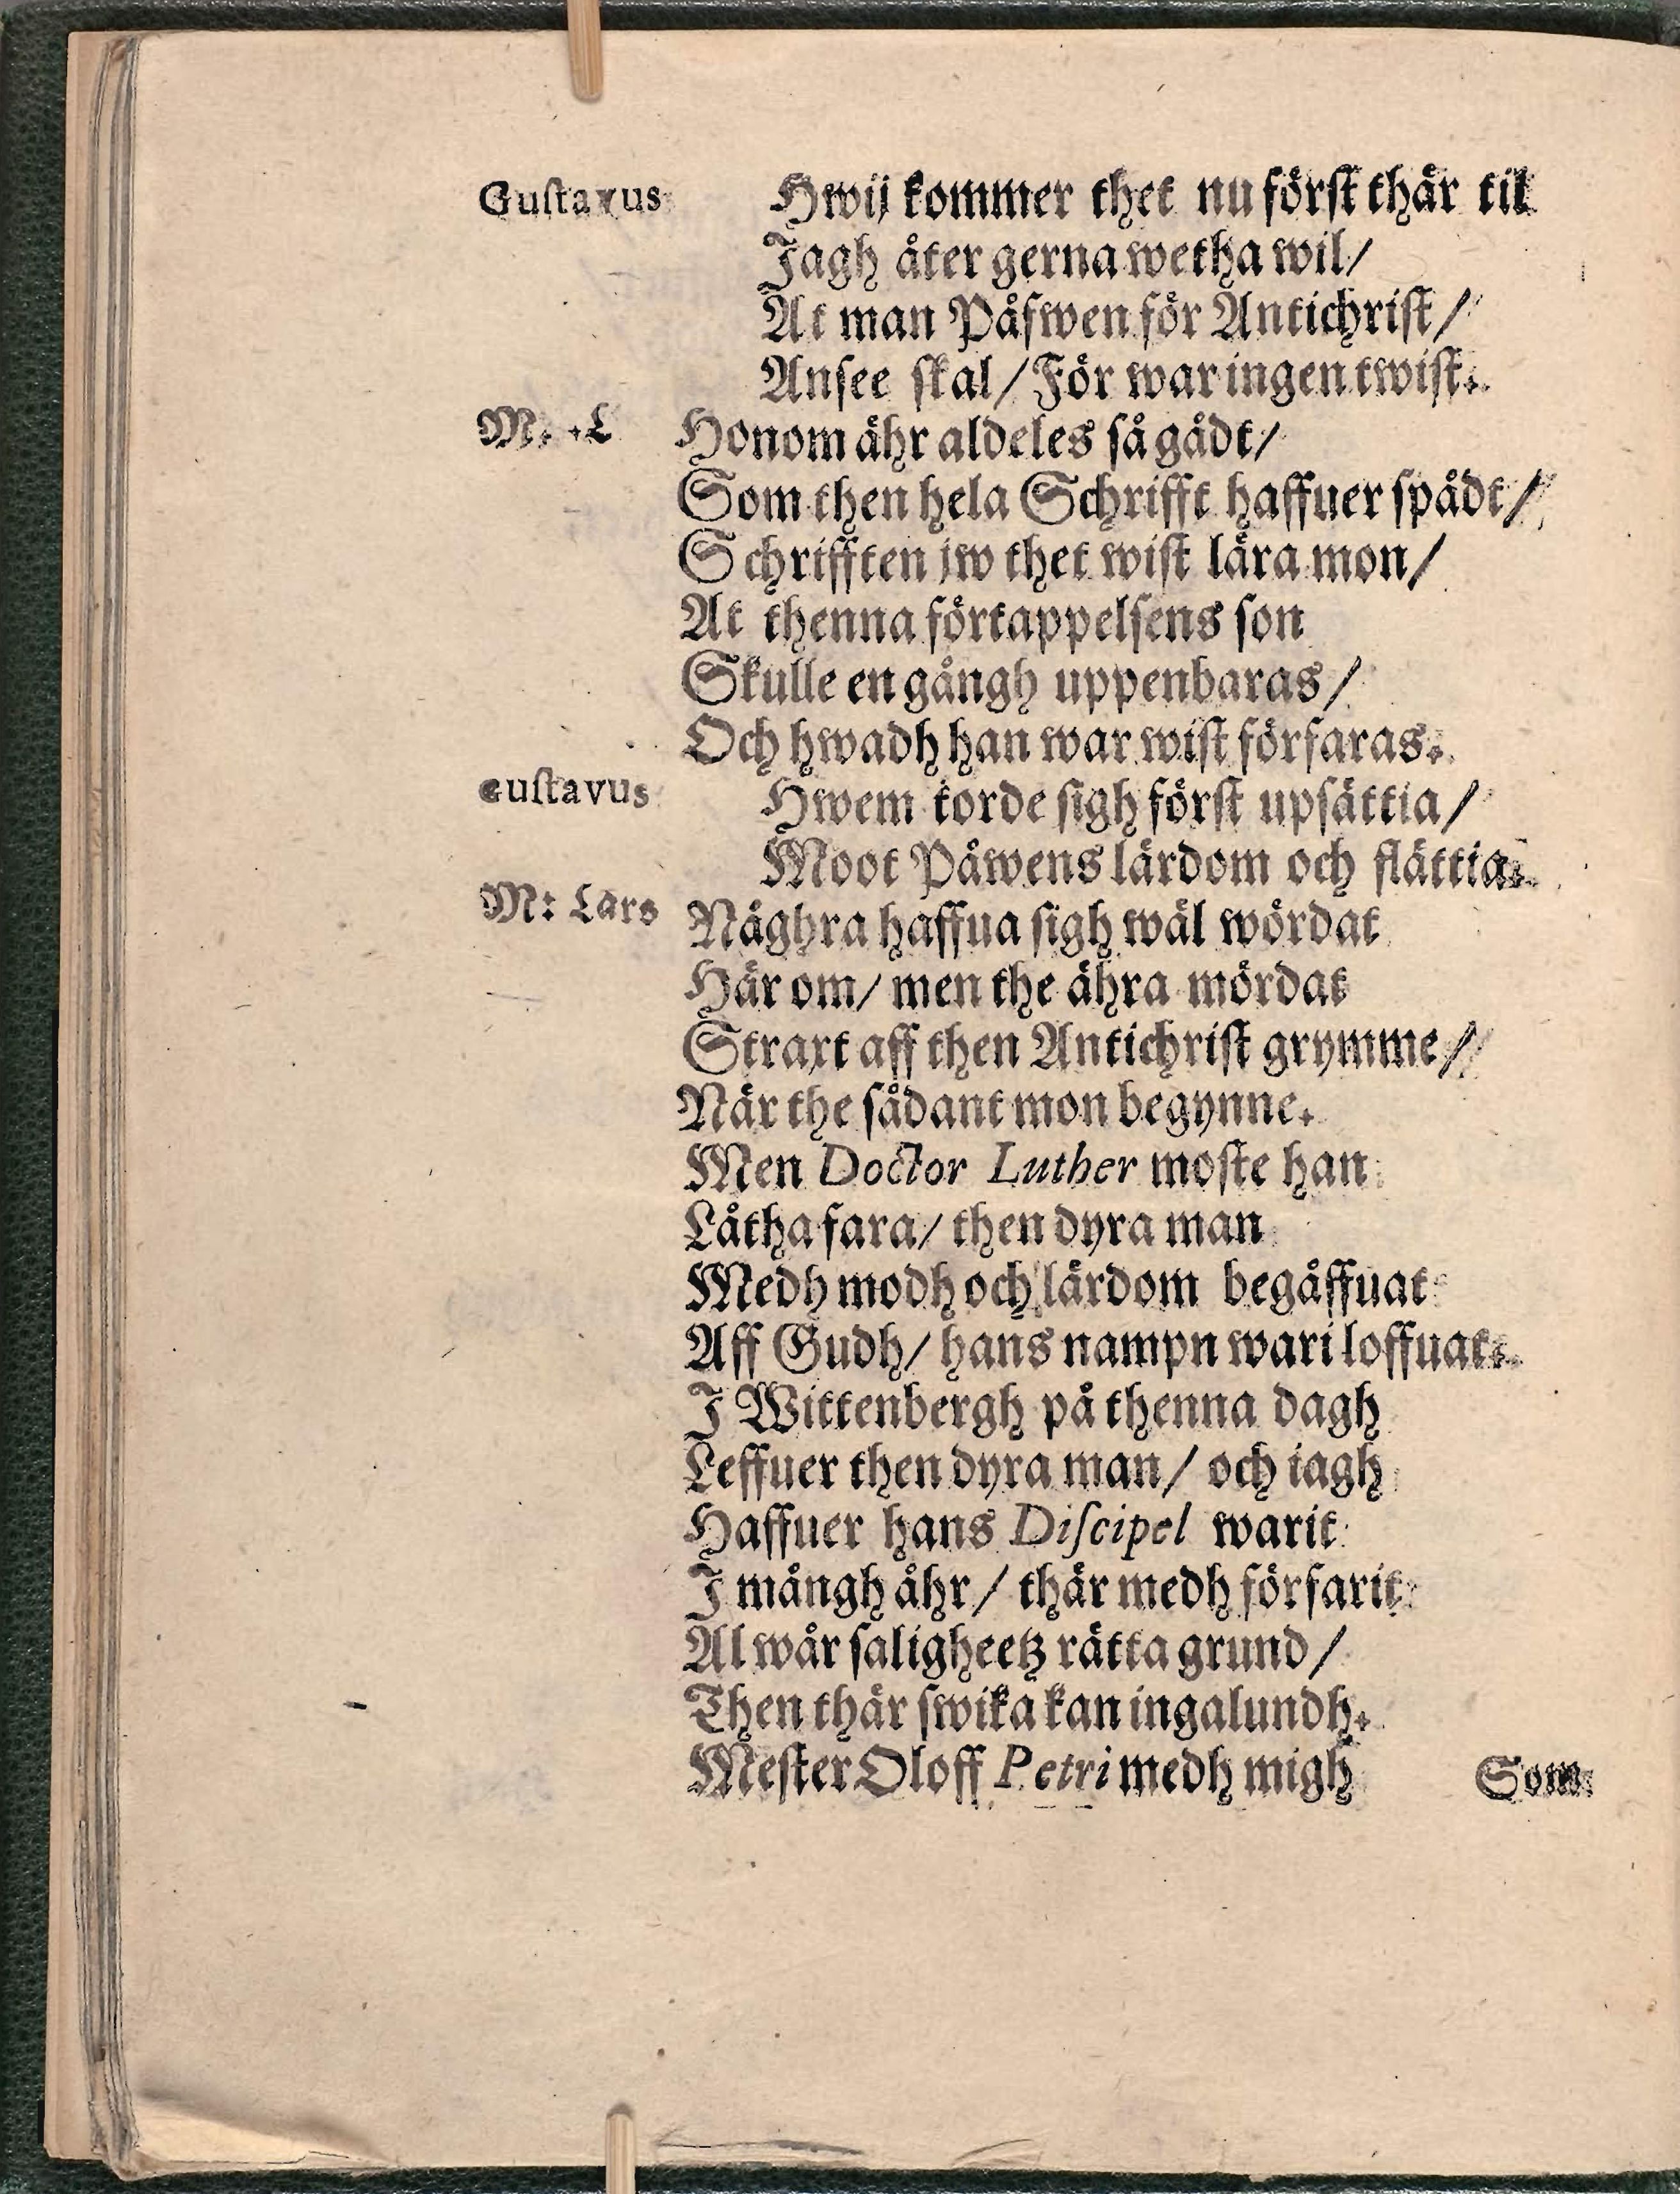 Gustavus Hwij kommer thet nu först thär til
Jagh åter gerna wetha wil/
At man Påfwen för Antichrist/
Ansee skal/ För war ingen twist.
M: L Honom ähr aldeles så gådt/
Som then hela Schrifft haffuer spådt/
Schrifften jw thet wist lära mon/
At thenna förtappelsens son
Skulle en gångh uppenbaras/
Och hwadh han war wist förfaras.
Gustavus Hwem torde sigh först upsättia/
Moot Påwens lärdom och flättia.
M: Lars Någhra haffua sigh wäl wördat
Här om/ men the ähra mördat
Straxt aff then Antichrist grymme/
När the sådant mon begynne.
Men Doctor Luther moste han
Låtha fara/ then dyra man
Medh modh och lärdom begåffuat
Aff Gudh/ hans nampn wari loffuat.
J Wittenbergh på thenna dagh
Leffuer then dyra man/ och iagh
Haffuer hans Discipel warit
J mångh åhr/ thär medh förfarit
Al wår saligheetz rätta grund/
Then thär swika kan ingalundh.
Mester Oloff Petri medh migh
Som